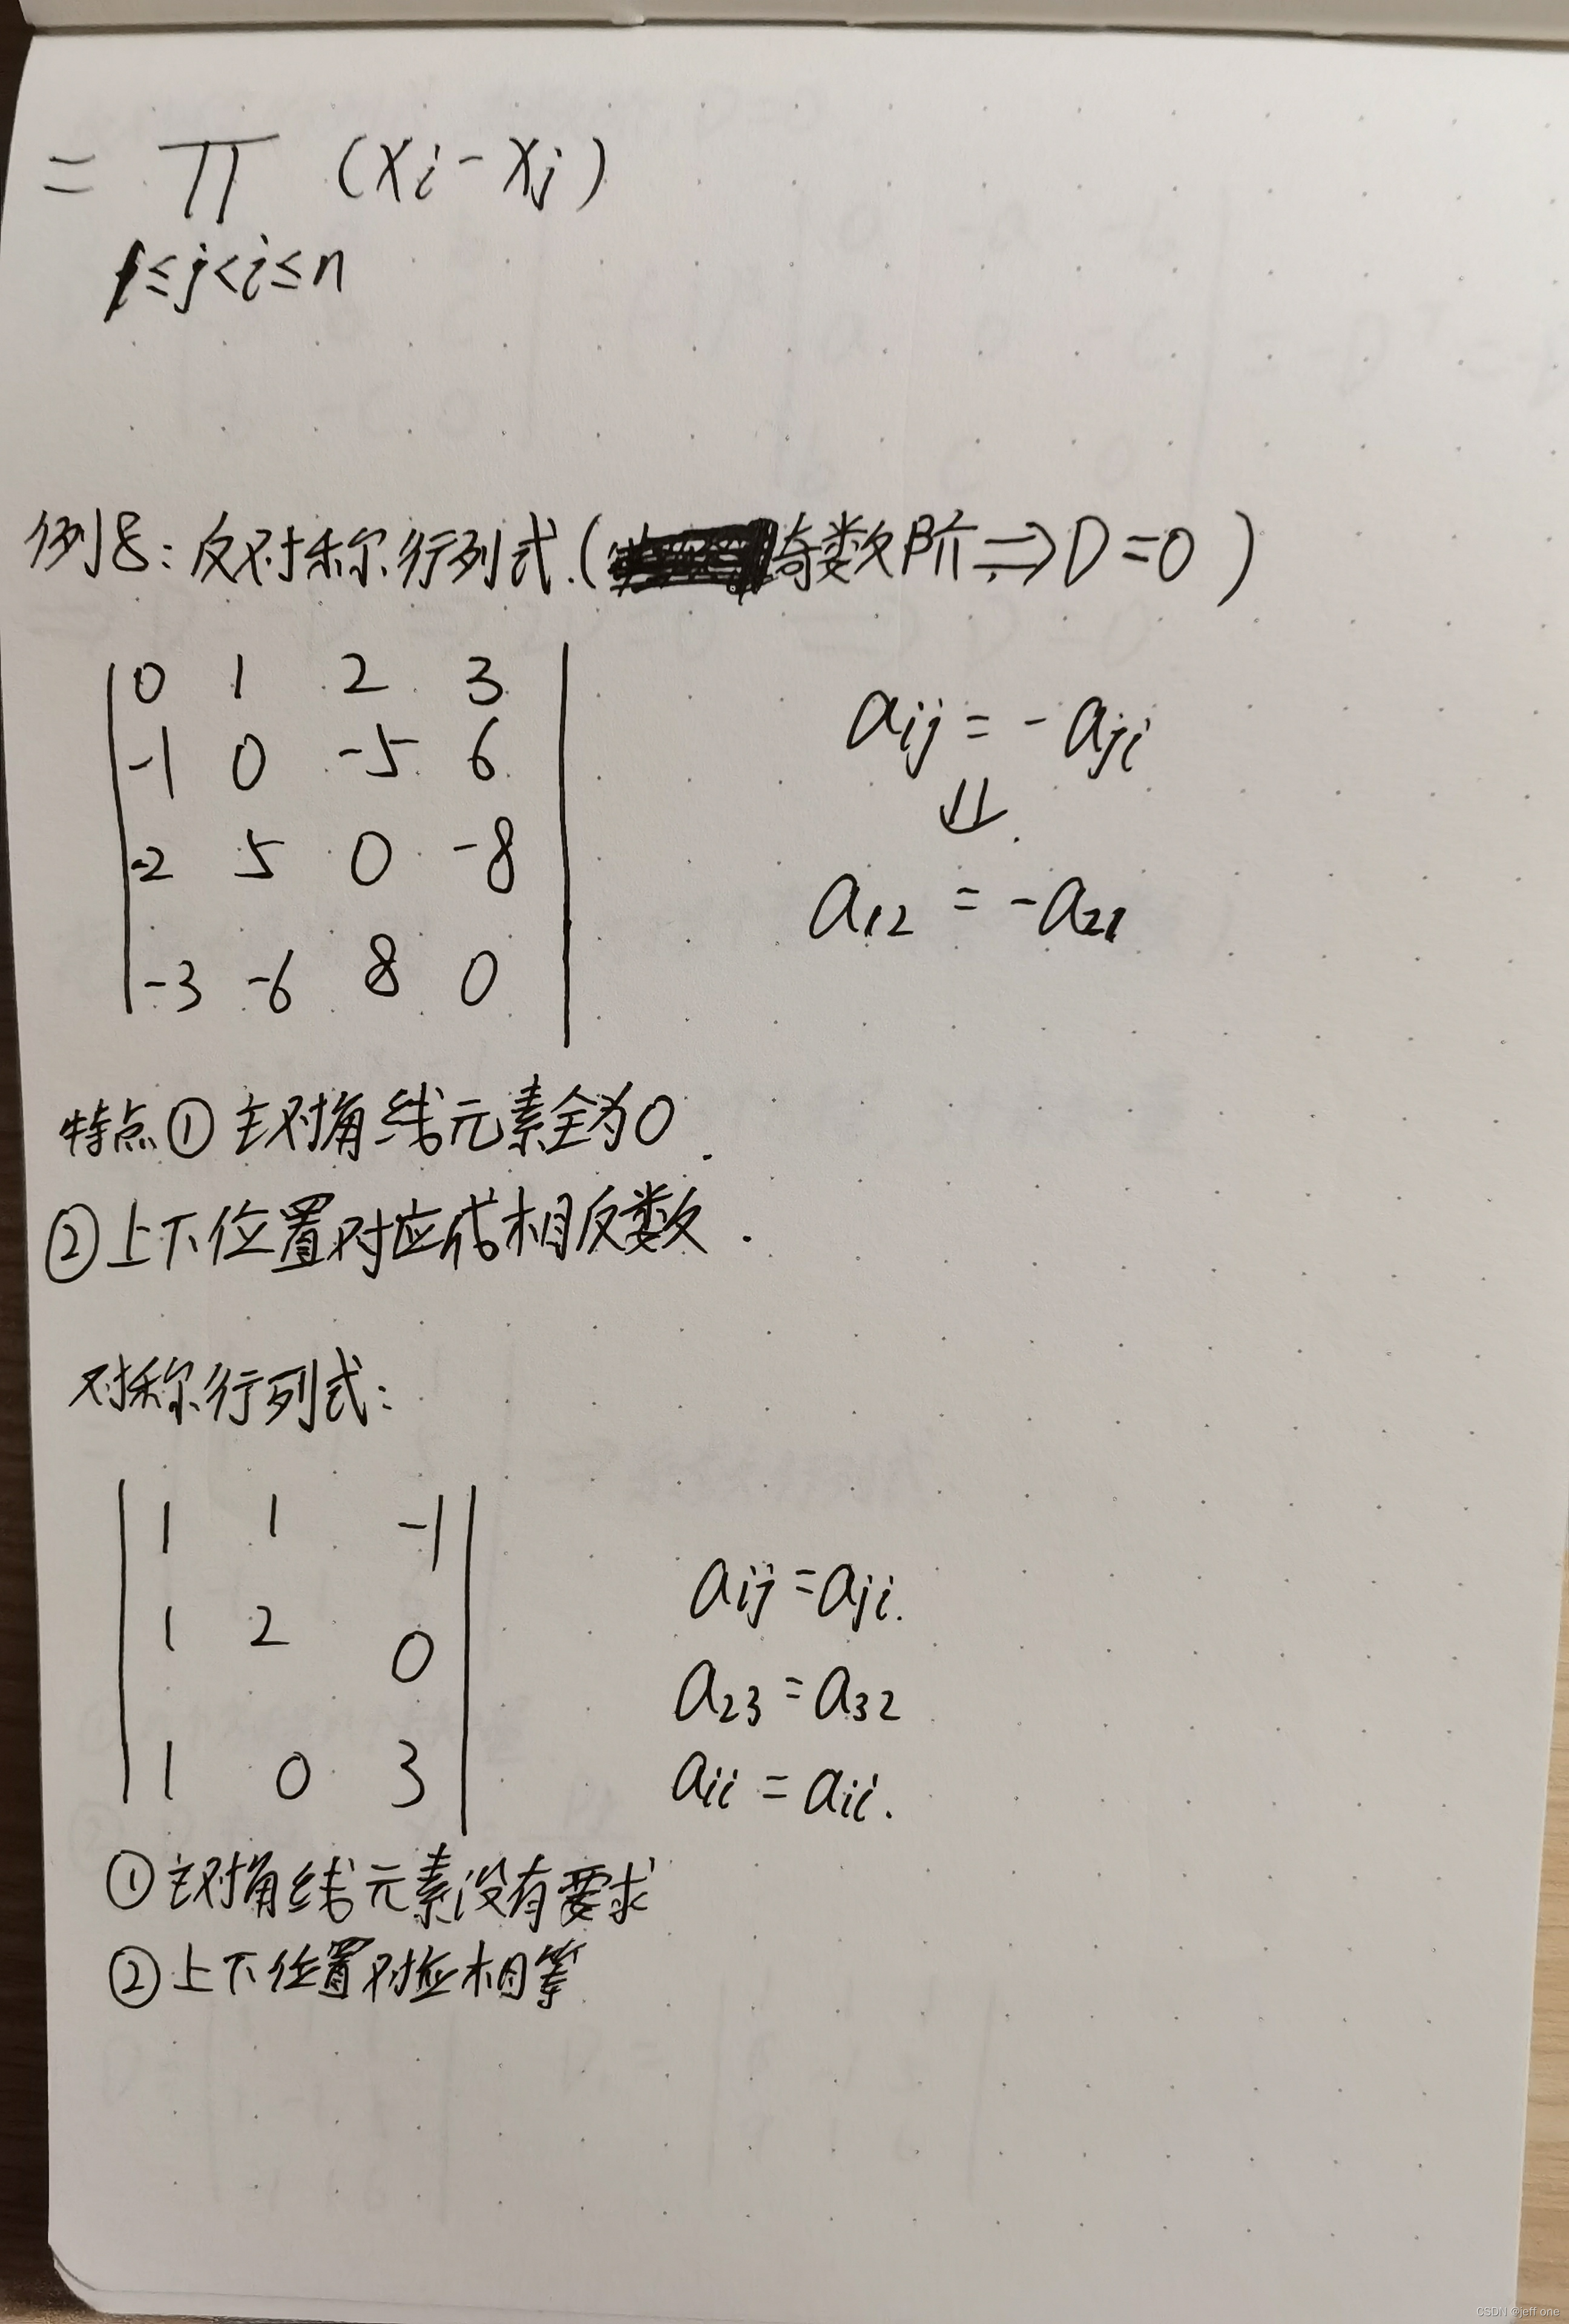 = ∏ (xi - xj)
1≤j<i≤n
例8:反对称行列式.(奇数阶⇒D=0)
0 1 2 3
-1 0 -5 6
-2 5 0 -8
-3 -6 8 0
aij = -aji
⇓
a12 = -a21
特点①主对角线元素全为0.
②上下位置对应成相反数.
对称行列式:
1 1 -1
1 2 0
1 0 3
aij = aji.
a23 = a32
aii = aii.
①主对角线元素没有要求
②上下位置对应相等
CSDN @jeff one